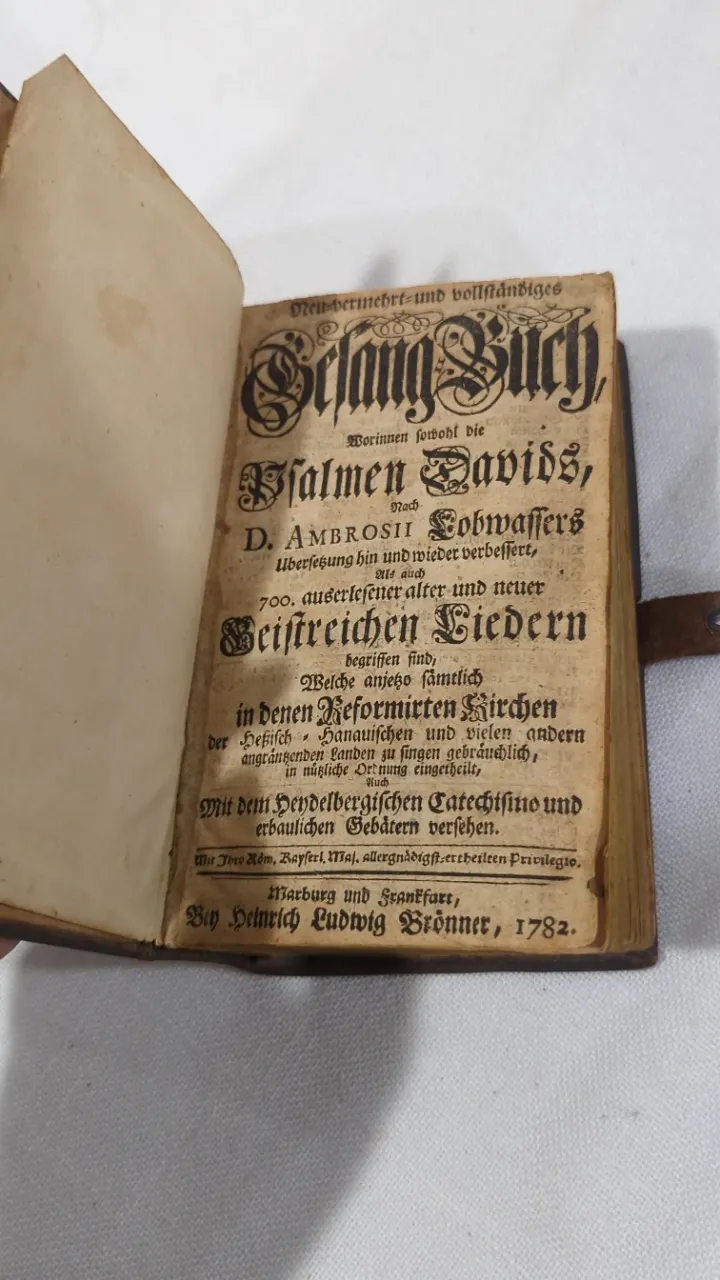 Neu-vermehrt- und vollständiges
Gesang-Buch,
Worinnen sowohl die
Psalmen Davids,
Nach
D. AMBROSII Lobwassers
Ubersetzung hin und wieder verbessert,
Als auch
700. auserlesener alter und neuer
Geistreichen Liedern
begriffen sind,
Welche anjetzo sämtlich
in denen Reformirten Kirchen
der Heßisch-Hanauischen und vielen andern
angräntzenden Landen zu singen gebräuchlich,
in nützliche Ordnung eingetheilt,
Auch
Mit dem Heydelbergischen Catechismo und
erbaulichen Gebätern versehen.
Mit Ihro Röm. Kayserl. Maj. allergnädigst-ertheilten Privilegio.
Marburg und Franckfurt,
Bey Heinrich Ludwig Brönner, 1782.